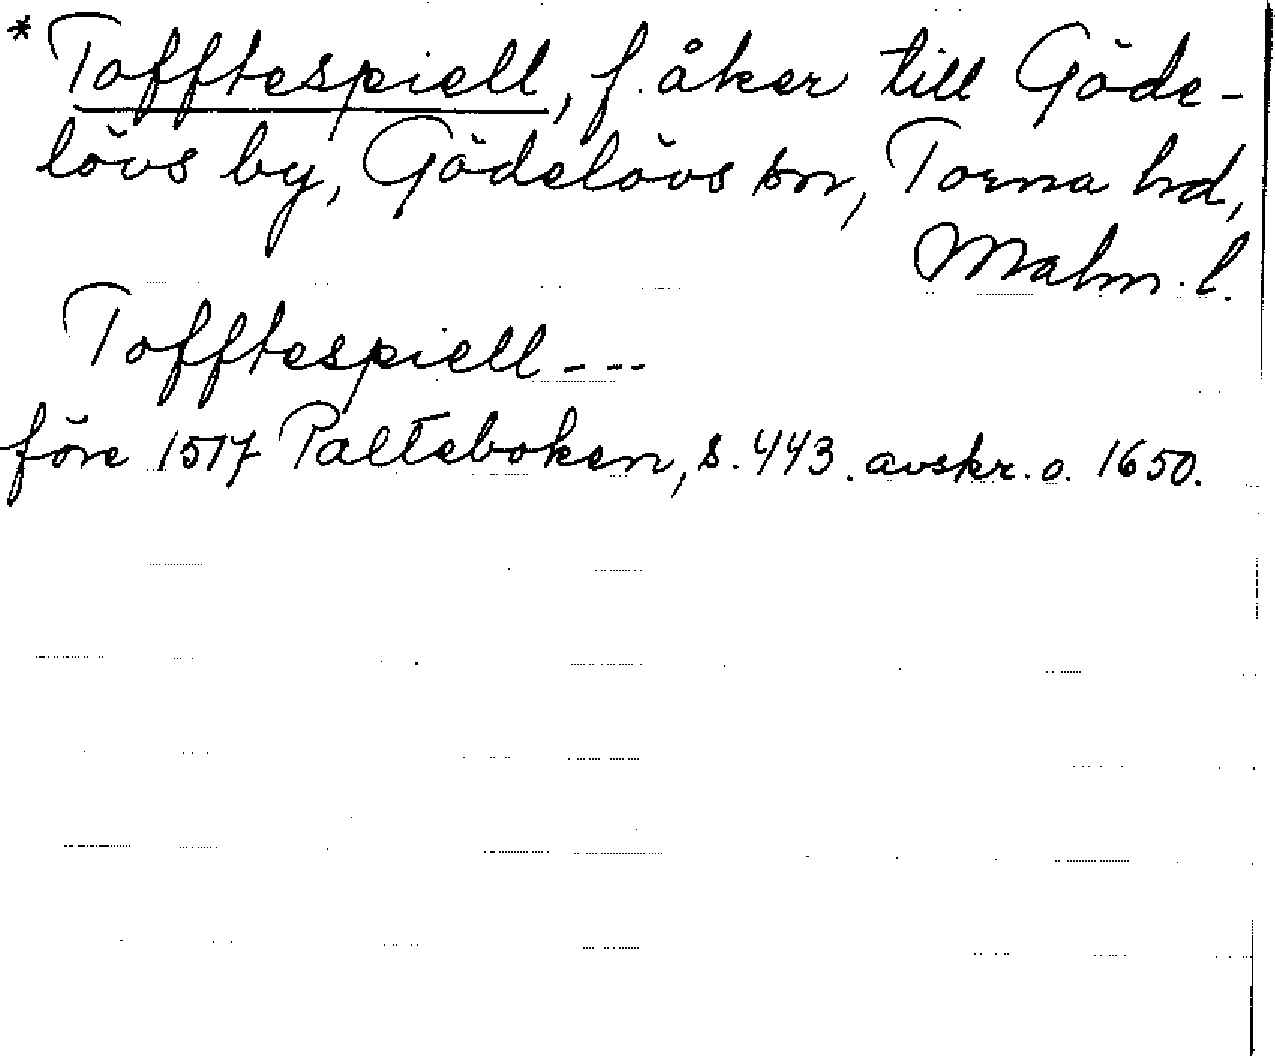 * Tofftespiell, f. åker till Göde-
lövs by, Gödelövs sn, Torna hd,
Malm. l.
Tofftespiell - - -
före 1517 Palteboken, s. 443. avskr. o. 1650.